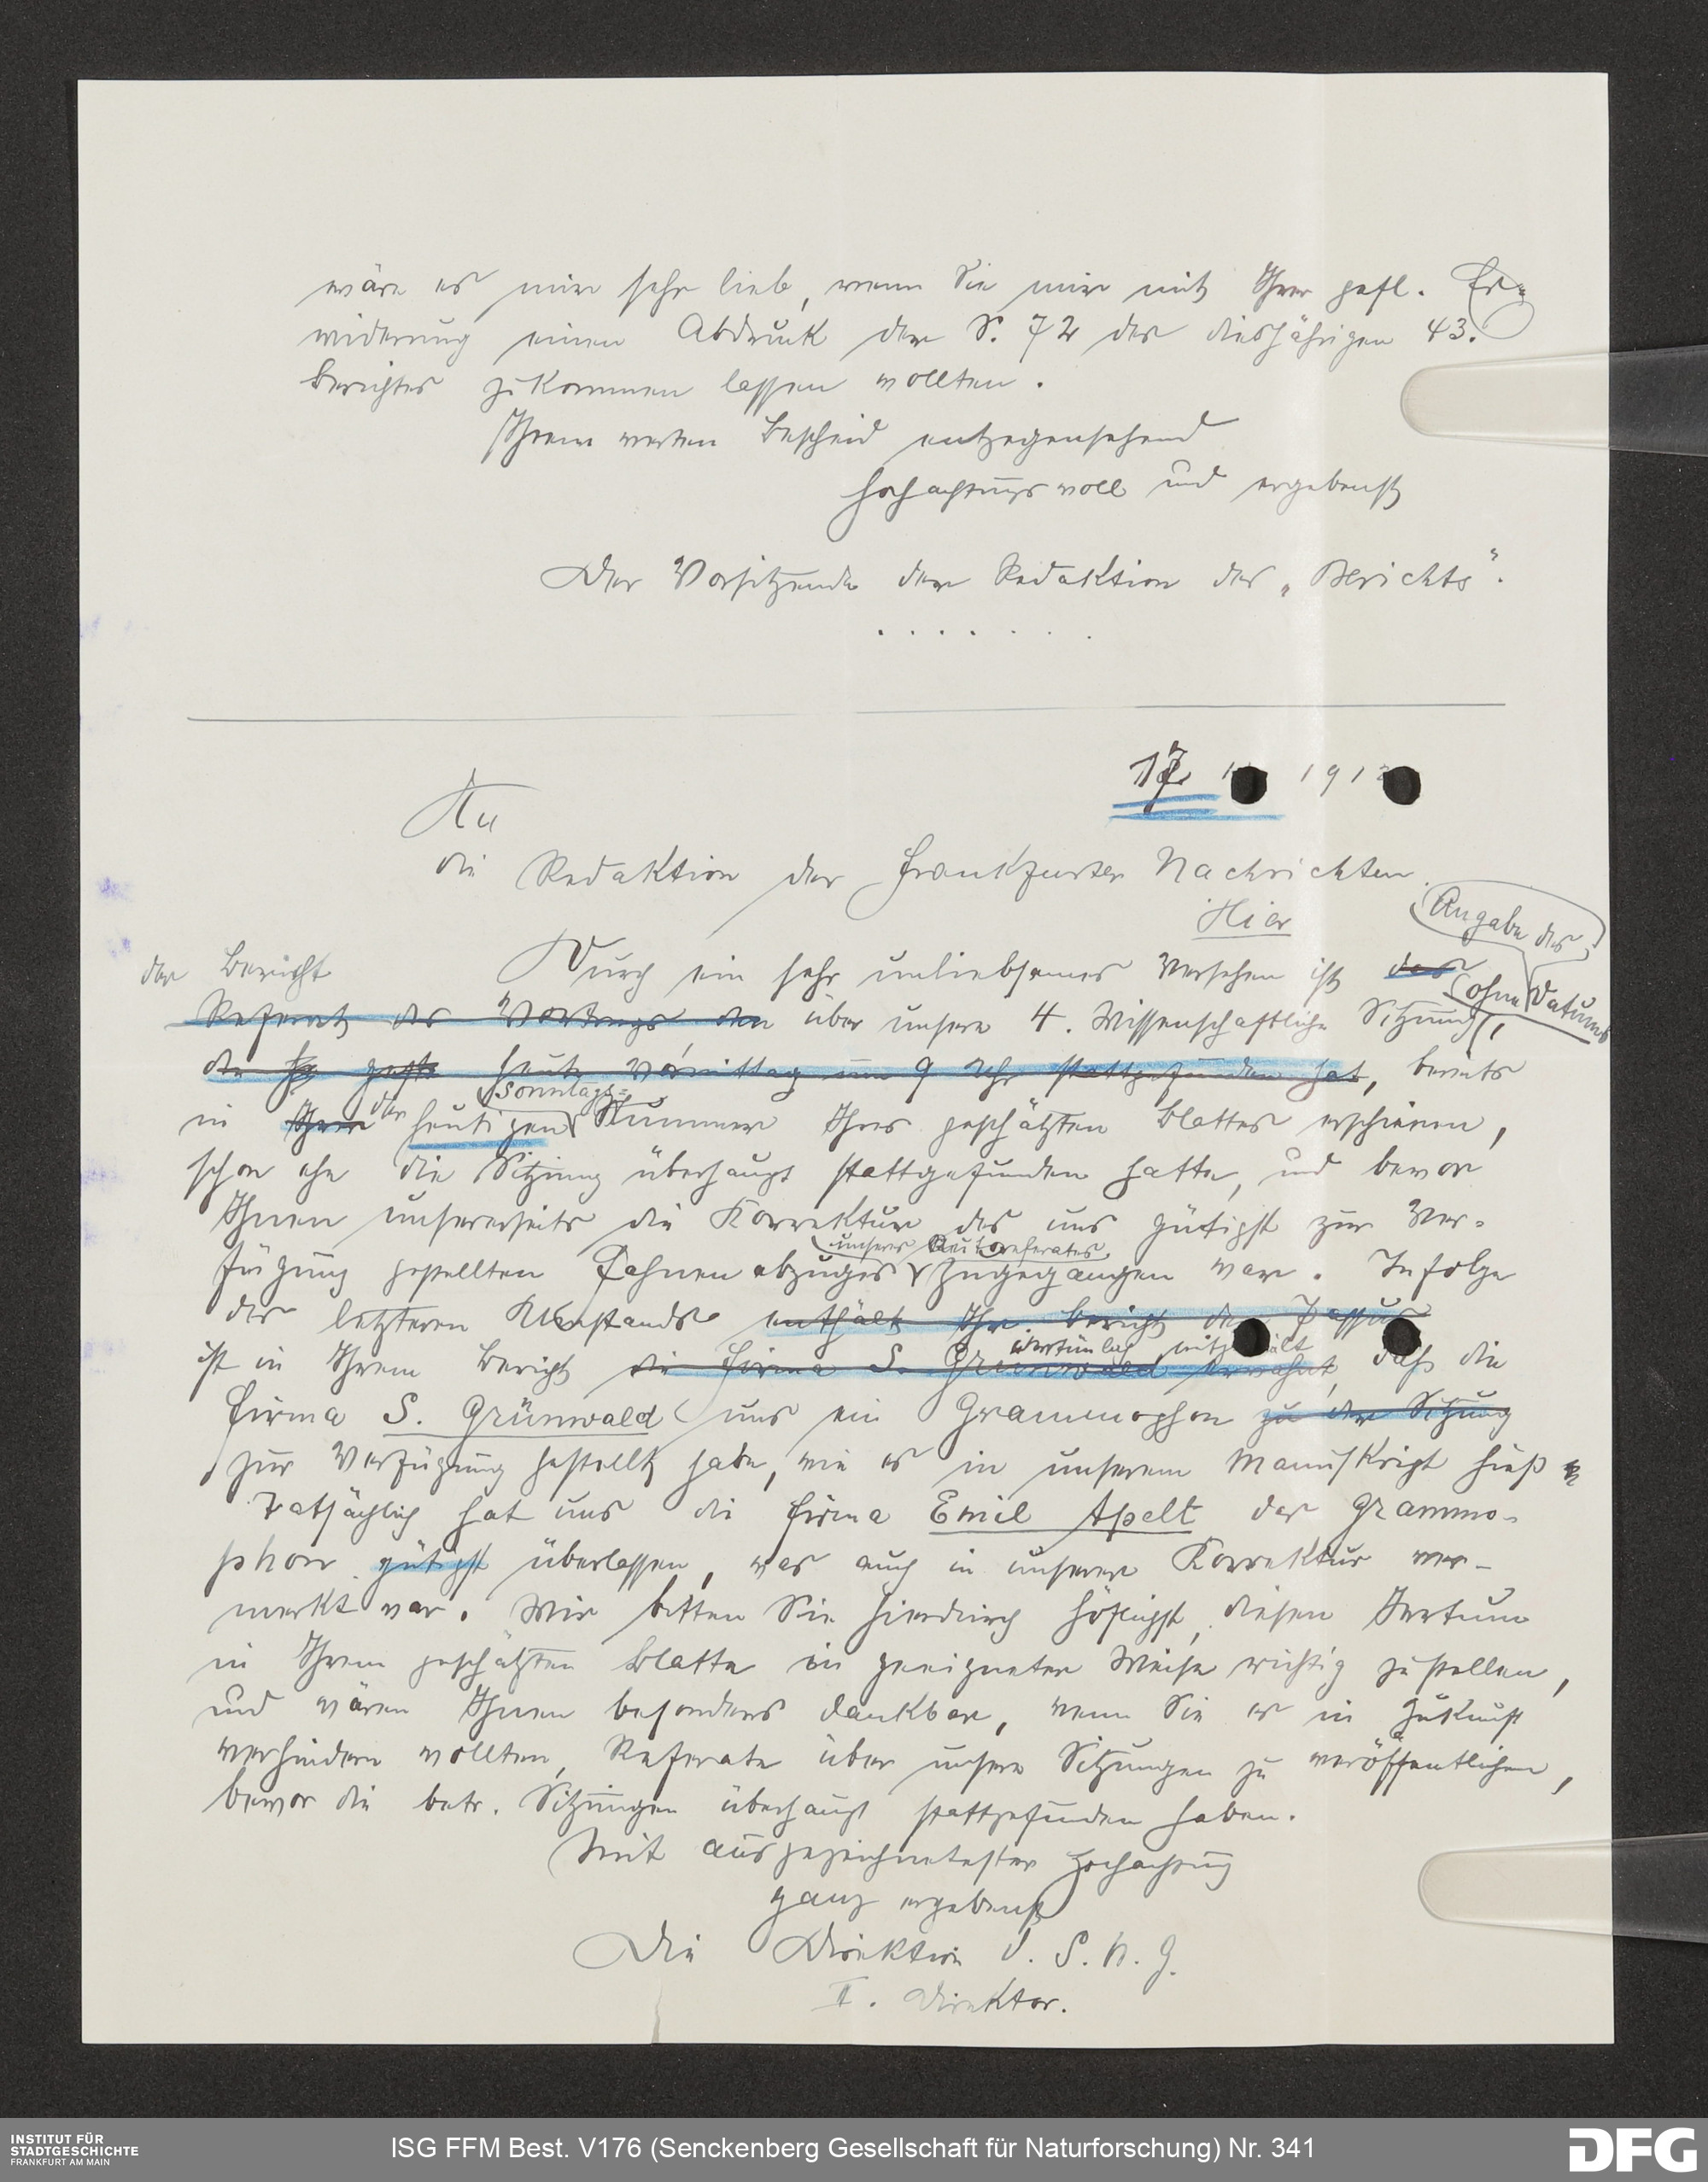 wäre es mir sehr lieb, wenn Sie mir mit Ihrer gefl. Er-
widerung einen Abdruck der S. 72 des diesjährigen 43.
Berichtes zukommen lassen wollten.
Ihrem werten Bescheid entgegensehend
hochachtungsvoll und ergebenst
Der Vorsitzende der Redaktion des „Berichts".
. . . . . . .
17 1912
An
die Redaktion der Frankfurter Nachrichten.
Hier
Angabe des
der Bericht Durch ein sehr unliebsames Versehen ist das
(ohne Datums
Referat des Vortrags den über unsere 4. Wissenschaftliche Sitzung,
die heute Vormittag um 9 Uhr stattgefunden hat, bereits
Sonntags-
in Ihrer der heutigen Nummer Ihres geschätzten Blattes erschienen,
schon ehe die Sitzung überhaupt stattgefunden hatte, und bevor
Ihnen unsererseits die Korrektur des uns gütigst zur Ver-
unseres Autoreferates
fügung gestellten Fahnenabzuges zugegangen war. Infolge
des letzteren Umstands enthält Ihr Bericht den Passus
irrtümlich mitgeteilt
ist in Ihrem Bericht die Firma S. Grünwald erwähnt, daß die
Firma S. Grünwald uns ein Grammophon zu der Sitzung
zur Verfügung gestellt habe, wie es in unserem Manuskript hieß
Tatsächlich hat uns die Firma Emil Apelt das Grammo-
phon gütigst überlassen, was auch in unserer Korrektur ver-
merkt war. Wir bitten Sie hierdurch höflichst, diesen Irrtum
in Ihrem geschätzten Blatte in geeigneter Weise richtig zu stellen,
und wären Ihnen besonders dankbar, wenn Sie es in Zukunft
verhindern wollten, Referate über unsere Sitzungen zu veröffentlichen,
bevor die betr. Sitzungen überhaupt stattgefunden haben.
Mit ausgezeichnetester Hochachtung
ganz ergebenst
Die Direktion d. S. N. G.
II. Direktor.
INSTITUT FÜR
STADTGESCHICHTE
FRANKFURT AM MAIN
ISG FFM Best. V176 (Senckenberg Gesellschaft für Naturforschung) Nr. 341
DFG